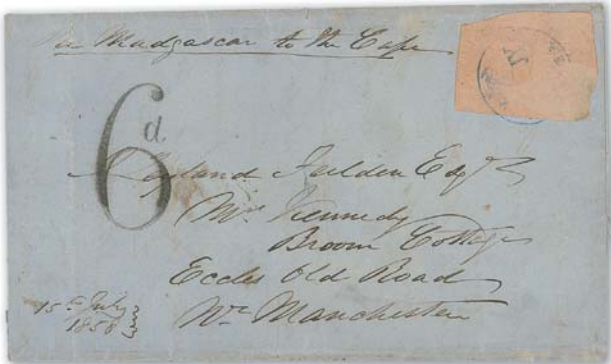 Madgascar to the Cape
6d
Leyland Feilden Esqr
Mrs Kennedy
Broom Cottage
Eccles Old Road
Nr Manchester
15 July
1858